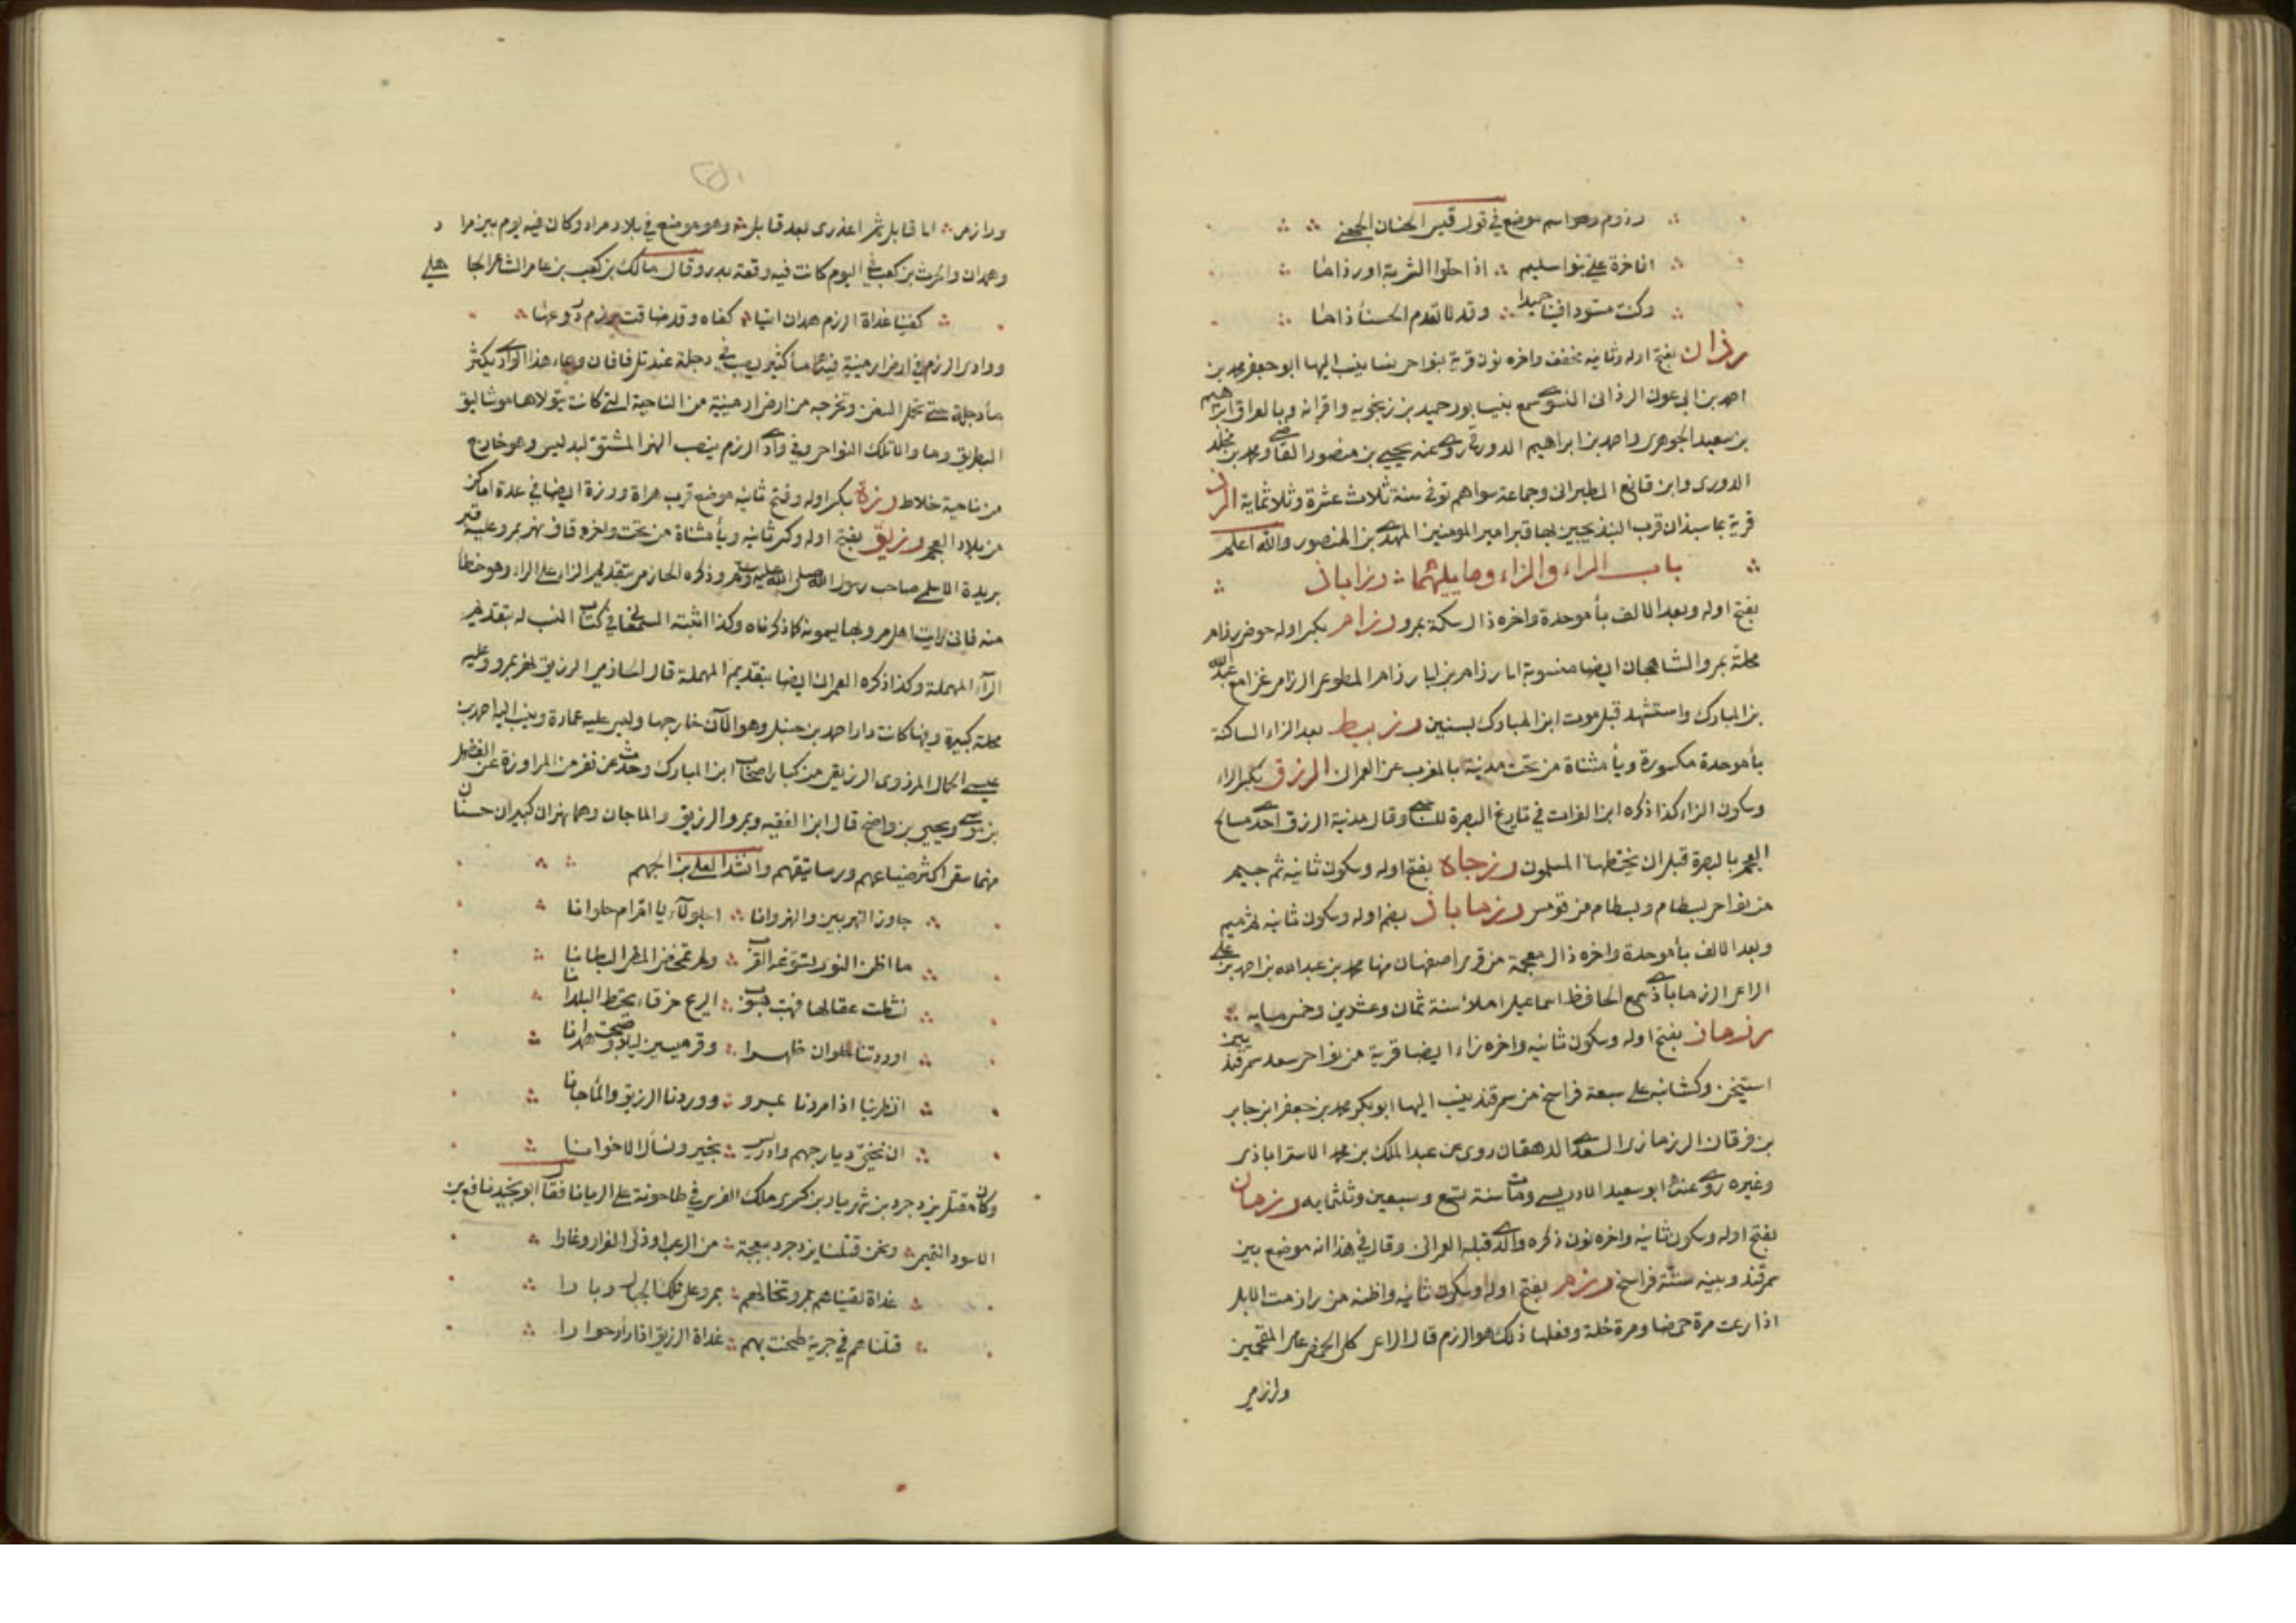 رذوم وهو اسم موضع في قول قيس الحنان الجهني
افاخرة علي بنو اسليم ∴ اذا حلوا الشربة اورذاما
وكنت مسودا فينا حميدا ∴ وقد لا تعدم الحسنأ ذاما
رذان بفتح اوله وثانيه مخفف واخره نون قرية بنواحي نسا ينسب اليها ابو جعفر محمد بن
احمد بن ابي عون الرذاني النسوي سمع بنيسابور حميد بن زنجويه واقرانه وبالعراق ابراهيم
بن سعيد الجوهري واحمد بن ابراهيم الدورقي روي عنه يحيي بن منصور القاضي ومحمد بن مخلد
الدوري وابن قانع الطبراني وجماعة سواهم توفي سنة ثلاث عشرة وثلاثماية الرذ
قرية بماسبذان قرب البندنيجين بها قبر امير المومنين المهدي بن المنصور والله اعلم
باب الراء والزاء وما يليهما ∴ رزاباذ
بفتح اوله وبعد الالف بأ موحدة واخره ذال سكة بمرو رزام بكسر اوله حوض رزام
محلة بمرو الشاهجان ايضا منسوبة الى رزام بن ابي رزام المطوعي الرزامي غزا مع عبدالله
بن المبارك واستشهد قبل موت ابن المبارك بسنين رزبيط بعد الزاء الساكنة
بأ موحدة مكسورة ويأ مثناة من تحت مدينة بالمغرب عن العمراني الرزق بكسر الراء
وسكون الزاء كذا ذكره ابن الفرات في تاريخ البصرة للساجي وقال مدينة الرزق احدي مسالح
العجم بالبصرة قبل ان يختطها المسلمون رزجاه بفتح اوله وسكون ثانيه ثم جيم
من نواحي بسطام وبسطام من قومس رزماباذ بضم اوله وسكون ثانيه ثم ميم
وبعد الالف بأ موحدة واخره ذال معجمة من قري اصفهان منها محمد بن عبد الله بن احمد بن علي
الراعي الرزماباذي سمع الحافظ اسماعيل املاء سنة ثمان وعشرين وخمسمايه
رزماز بفتح اوله وسكون ثانيه واخره زاء ايضا قرية من نواحي سعد سمرقند بين
استيخن وكشانيه علي سبعة فراسخ من سمرقند ينسب اليها ابو بكر محمد بن جعفر ابن جابر
بن فرقان الرزمازي السعدي الدهقان روي عن عبد الملك بن محمد الاستراباذي
وغيره روي عنه ابو سعيد الادريسي ومات سنة تسع وسبعين وثلثمايه رزمان
بفتح اوله وسكون ثانيه واخره نون ذكره والذي قبله العمراني وقال في هذا انه موضع بين
سمرقند وبينه ستة فراسخ رزم بفتح اوله وسكون ثانيه واظنه من رازمت الابل
اذا رعت مرة حمضا ومرة خلة وفعلها ذلك هو الرزم قال الراعي كلي الحمض عام المقحمين
ورازمي
ورازمي ∴ الى قابل ثم اعذري بعد قابل ∴ وهو موضع في بلاد مراد وكان فيه يوم بين مراد
وهمدان والحرث بن كعب في اليوم كانت فيه وقعة بدر وقال مالك بن كعب بن عامر الشاعر الجاهلي
كفينا غداة الرزم همدان اتيا ∴ كفاه وقد ضاقت برزم دروعها
ووادي الرزم في ارض ارمينية فيه ماء كثير يصب في دجلة عند تل فافان وماء هذا الوادي يكثر
مأ دجلة حتي تحمل السفن وتخرجه من ارض ارمينية من الناحية التي كانت يتولاها موشاليق
البطريق وما والى تلك النواحي وفي وادي الرزم ينصب النهر المشتق لبدليس وهو خارج
من ناحية خلاط رزة بكسر اوله وفتح ثانيه موضع قرب هراة ورزة ايضا في عدة اماكن
من بلاد العجم رزيق بفتح اوله وكسر ثانيه ويأ مثناة من تحت واخره قاف نهر بمرو عليه قبر
بريدة الاسلمي صاحب رسول الله صلى الله عليه وسلم وذكره الحازمي بتقديم الزاء على الراء وهو خطأ
منه فاني رايت اهل مرو بها يسمونه كما ذكرناه وكذا اثبته السمعاني في كتاب النسب له بتقديم
الرآء المهملة وكذا ذكره العمراني ايضا بتقديم المهملة قال استاذي الرزيق نهر بمرو وعليه
محلة كبيرة وفيها كانت دار احمد بن حنبل وهو الآن خارجها وليس عليه عمارة وينسب اليه احمد بن
عيسى الحمال المروزي الرزيقي من كبار اصحاب ابن المبارك وحدث عن نفر من المراوزة عن الفضل
بن موسى ويحيي بن واضح قال ابن الفقيه وبمرو الرزيق والماجان وهما نهران كبيران حسنان
منهما سقى اكثر ضياعهم ورساتيقهم وانشد لعلي بن الجهم
جاوز النهرين والنهروانا ∴ اجلولآء يا امرام حلوانا
ما اظن النوي تسوغه القرب ∴ ولم تمخض المطي البطانا
نشطت عقالها فهبت هبوب ∴ الريح خرقاء تخبط البلدانا
اوردتنا حلوان ظهرا ∴ وقرميسين ليلا وصبحت همدانا
انظرينا اذا مررنا بمرو ∴ ووردنا الرزيق والمأجانا
ان نحيي ديار جهم وادريس ∴ بخير ونسأل الاخوانا
وكان مقتل يزدجرد بن شهريار بن كسرى ملك الفرس في طاحونة على الريانا فقال ابو بجيد نافع بن
الاسود التميمي ∴ ونحن قتلنا يزدجرد ببعجة ∴ من الرعب اذ ولى الفرار وغارا
غداة لقيناهم بمرو تخالهم ∴ بمرو على تلك الجبال وبارا
قتلناهم في جرية طحنت بهم ∴ غداة الرزيق اذ اراد حوارا